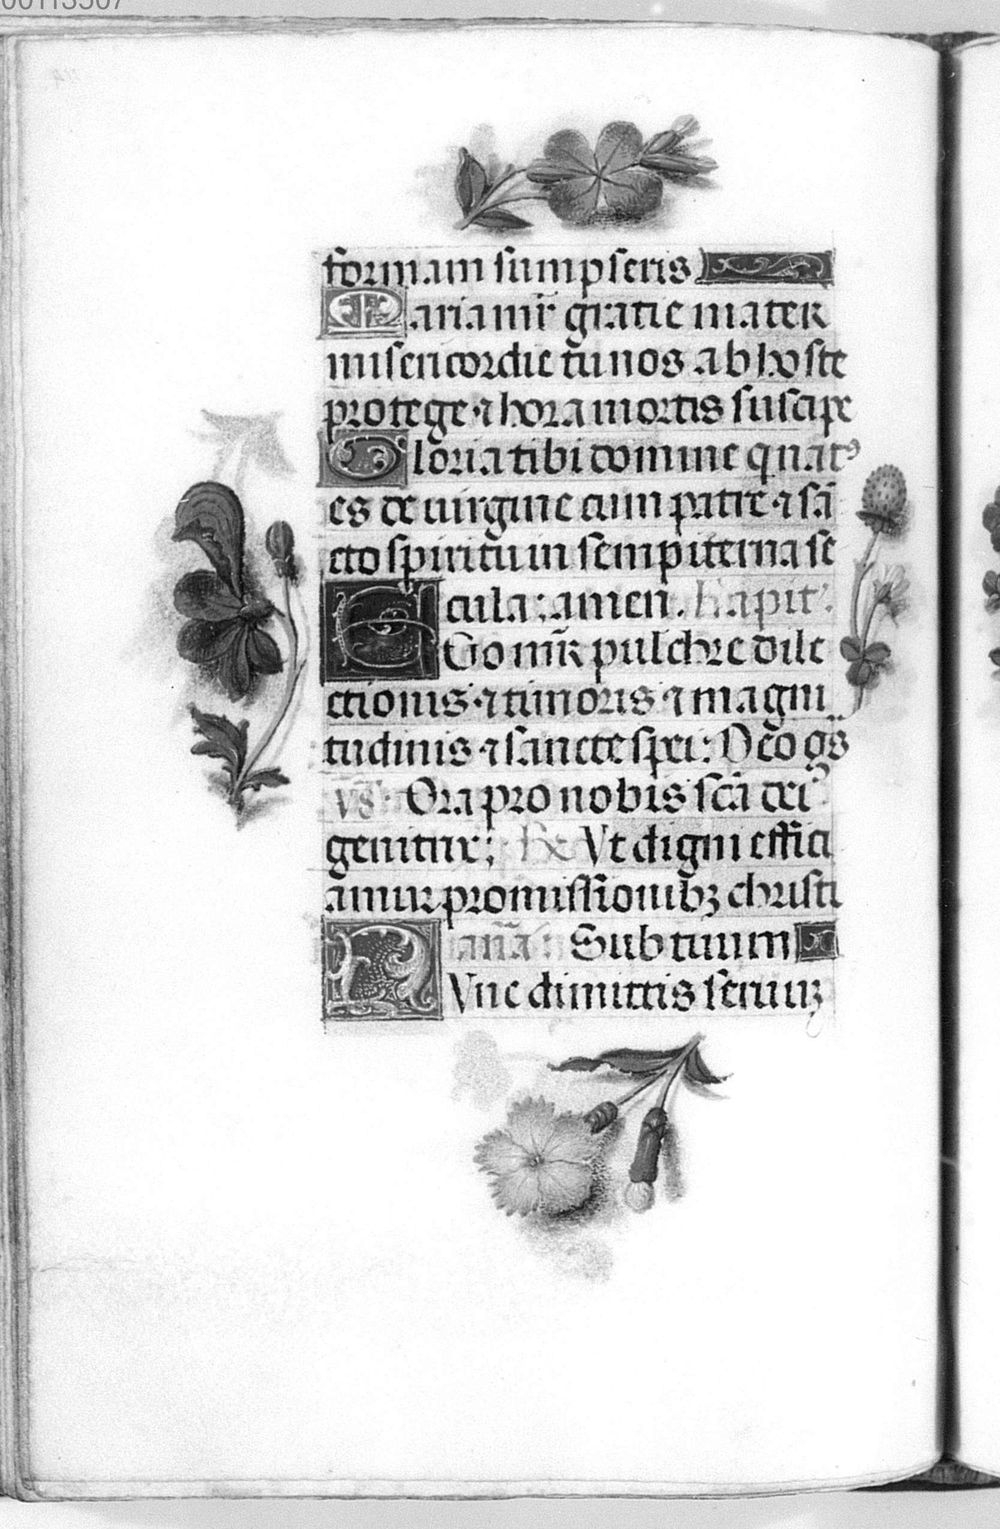 00113507
formam sumpseris
Maria mr̃ gratie mater
misericordie tu nos ab hoste
protege ⁊ hora mortis suscipe
Gloria tibi domine qui nat⁹
es de uirgine cum patre ⁊ sā
cto spiritu in sempiterna se
cula; amen. Kapit'.
Ego mr̃ pulchre dile
ctionis ⁊ timoris ⁊ magni
tudinis ⁊ sancte spei: Deo gs̄
v̄s. Ora pro nobis scā dei
genitrix; Rx Vt digni effici
amur promissionibꝫ christi
anā: Sub tuum
NVnc dimittis seruuꝫ